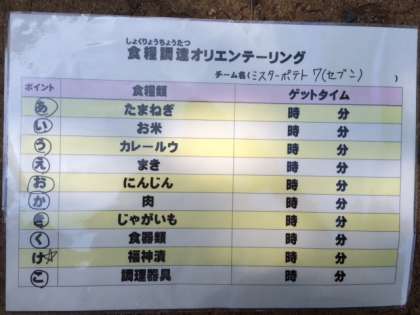 しょくりょうちょうたつ
食糧調達オリエンテーリング
チーム名(ミスターポテト7(セブン) )
ポイント 食糧類 ゲットタイム
あ たまねぎ 時 分
い お米 時 分
う カレールウ 時 分
え まき 時 分
お にんじん 時 分
か 肉 時 分
き じゃがいも 時 分
く 食器類 時 分
け☆ 福神漬 時 分
こ 調理器具 時 分